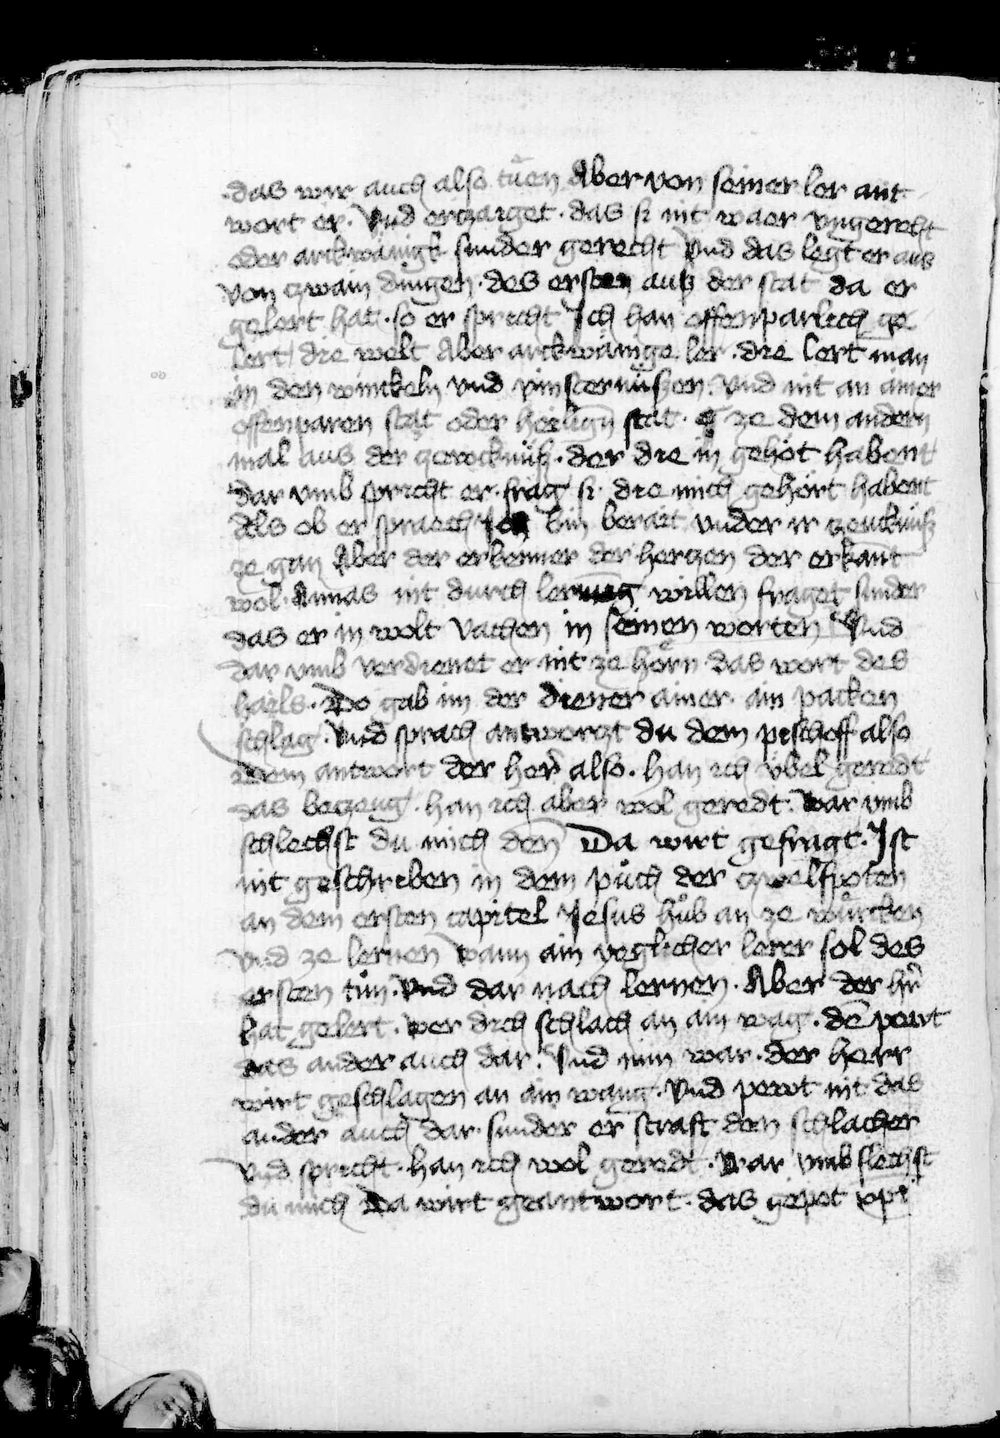 das wir auch also tuͤen Aber von seiner ler ant
wort er. Vnd ertzaiget. das si nit waer vngerecht
oder arckwänigk sunder gerecht Vnd das legt er aus
von zwain dingen. des ersten aus der stat da er
gelert hat. so er spricht Ich han offenparlich ge
lert die welt Aber arckwänige ler. die lert man
in den winckeln vnd vinsternüssen. Vnd nit an ainer
offenparen stat oder heiligñ stat. ze dem andern
mal aus der gezewcknüß. der die in gehöt habent
dar vmb spricht er. frag si. die mich gehört habent
Als ob er spraech Ich bin berait vnder ir zeucknüß
ze gan Aber der erkenner der hertzen der erkant
wol. Annas nit durch lernũg willen fraget sunder
das er in wolt vachen in seinen worten Vnd
dar vmb verdienet er nit ze hörn das wort des
hails. Do gab im der diener ainer. ain packen
schlag. Vnd sprach antworzt du dem pischoff also
Dem antwort der her̃ also. han ich vbel geredt
das betzeug. han ich aber wol geredt. War vmb
schlechst du mich deñ Da wirt gefragt. Ist
nit geschriben in dem puͦch der zwelfpoten
an dem ersten capitel Jesus huͦb an ze wuͤrcken
vnd ze lernen wann ain yeglicher lerer sol des
ersten tuͦn. Vnd dar nach lernen. Aber der hr̃
hat gelert. wer dich schlach an ain wag. dẽ pewt
das ander auch dar. Vnd nim war. der herr
wirt geschlagen an ain wang. Vnd pewt nit das
ander auch dar. sunder er straft den schlacher
Vnd spricht. han ich wol geredt. War vmb slechst
du mich Da wirt geantwort. das gepot xpi